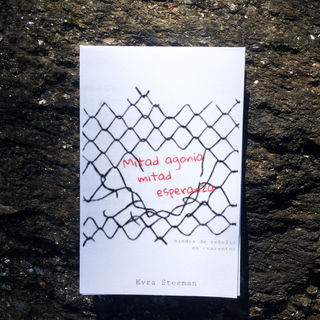 Mitad agonía
mitad
esperanza
de rebelió
en cuarentena
Evra Sterman